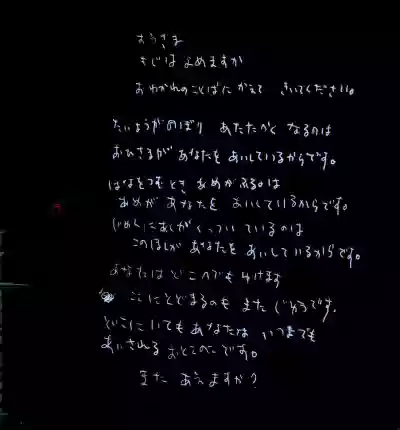 おうさま
きじは よめますか
おわかれのことばに かえて きいてください。
たいようがのぼり あたたかく なるのは
おひさまが あなたを あいしているからです。
はなをつむとき あめがふるのは
あめが あなたを あいしているからです。
じめんにあしがくっついているのは
このほしがあなたを あいしているからです。
あなたはどこへでも いけます
ここにとどまるのも また じゆうです。
どこにいても あなたは いつまでも
あいされる おとこのこです。
また あえますか?